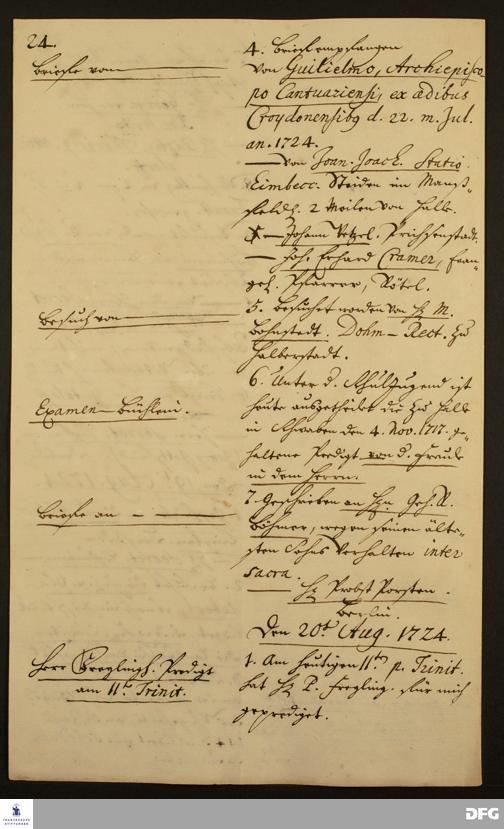 24.
Briefe von
4. Briefe empfangen
von Guilielmo, Archiepisco
po Cantuariensi, ex ædibus
Croydonensibq d. 22. m. Jul.
an. 1724.
— von Joan. Joach. Statio.
Eimbecc. Steiden im Manß-
feldl. 2 Meilen von Halle.
— Johann Vetzel. Prichsenstadt.
— Joh. Erhard Cramer, Evan-
gel. Pfarrer, Rötel.
Besuch von
5. Besuchet worden von H. M.
Bohnstedt. Dohm-Rect. zu
Halberstadt.
Examen-Büchlein.
6. Unter d. Schuljugend ist
heute ausgetheilet die zu Halle
in Schwaben den 4. Nov. 1717. ge-
haltene Predigt von d. Freude
in dem Herrn.
Briefe an
7. Geschrieben an Hn. Geh. R.
Böhmer, wegen seines älte-
sten Sohns Verhalten inter
sacra.
— H. Probst Porsten.
Berlin.
Den 20st Aug. 1724.
Herr Freylingh. Predigt
am 11ten Trinit.
1. Am heutigen 11ten p. Trinit.
hat H. P. Freyling. für mich
geprediget.
FRANCKESCHE STIFTUNGEN
DFG